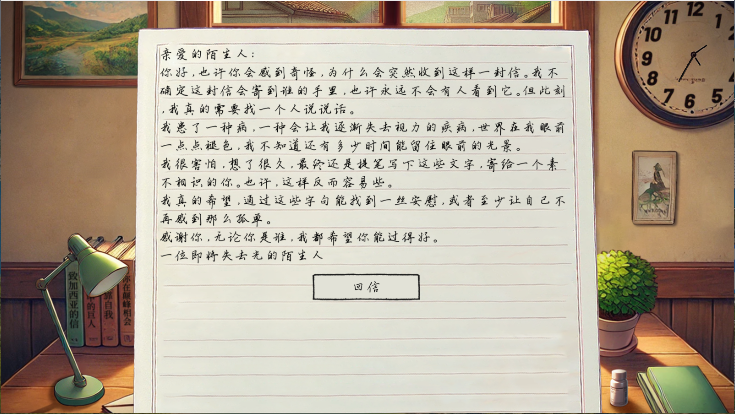 亲爱的陌生人：
你好，也许你会感到奇怪，为什么会突然收到这样一封信。我不
确定这封信会寄到谁的手里，也许永远不会有人看到它。但此刻
，我真的需要找一个人说说话。
我患了一种病，一种会让我逐渐失去视力的疾病，世界在我眼前
一点点褪色，我不知道还有多少时间能留住眼前的光景。
我很害怕，想了很久，最终还是提笔写下这些文字，寄给一个素
不相识的你。也许，这样反而容易些。
我真的希望，通过这些字句能找到一丝安慰，或者至少让自己不
再感到那么孤单。
感谢你，无论你是谁，我都希望你能过得好。
一位即将失去光的陌生人
回信
致加西亚的信
的巨人
靠自我
在巅峰相会
11 12 1
10 2
9 3
8 4
7 6 5